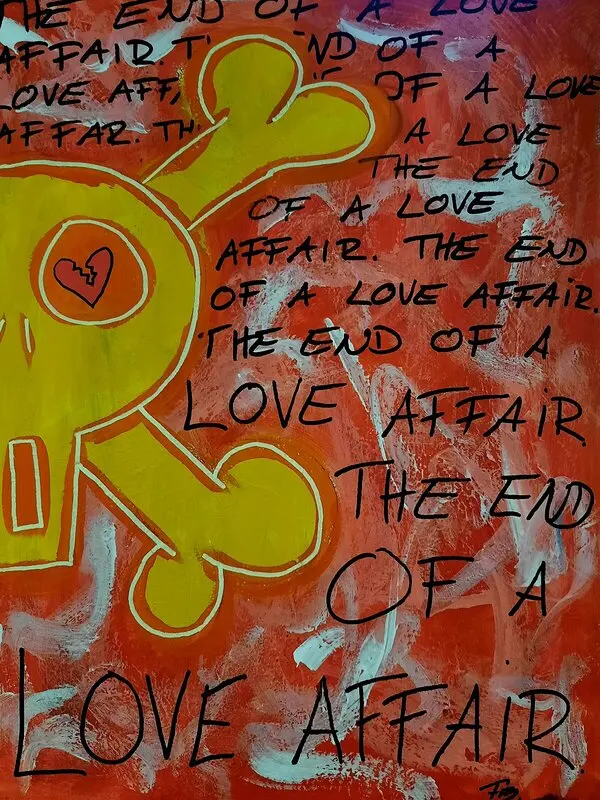 THE END OF A LOVE
AFFAIR. T ND OF A
LOVE AFFA OF A LOVE
AFFAR. TH. A LOVE
THE END
OF A LOVE
AFFAIR. THE END
OF A LOVE AFFAIR.
THE END OF A
LOVE AFFAIR.
THE END
OF A
LOVE AFFAIR.